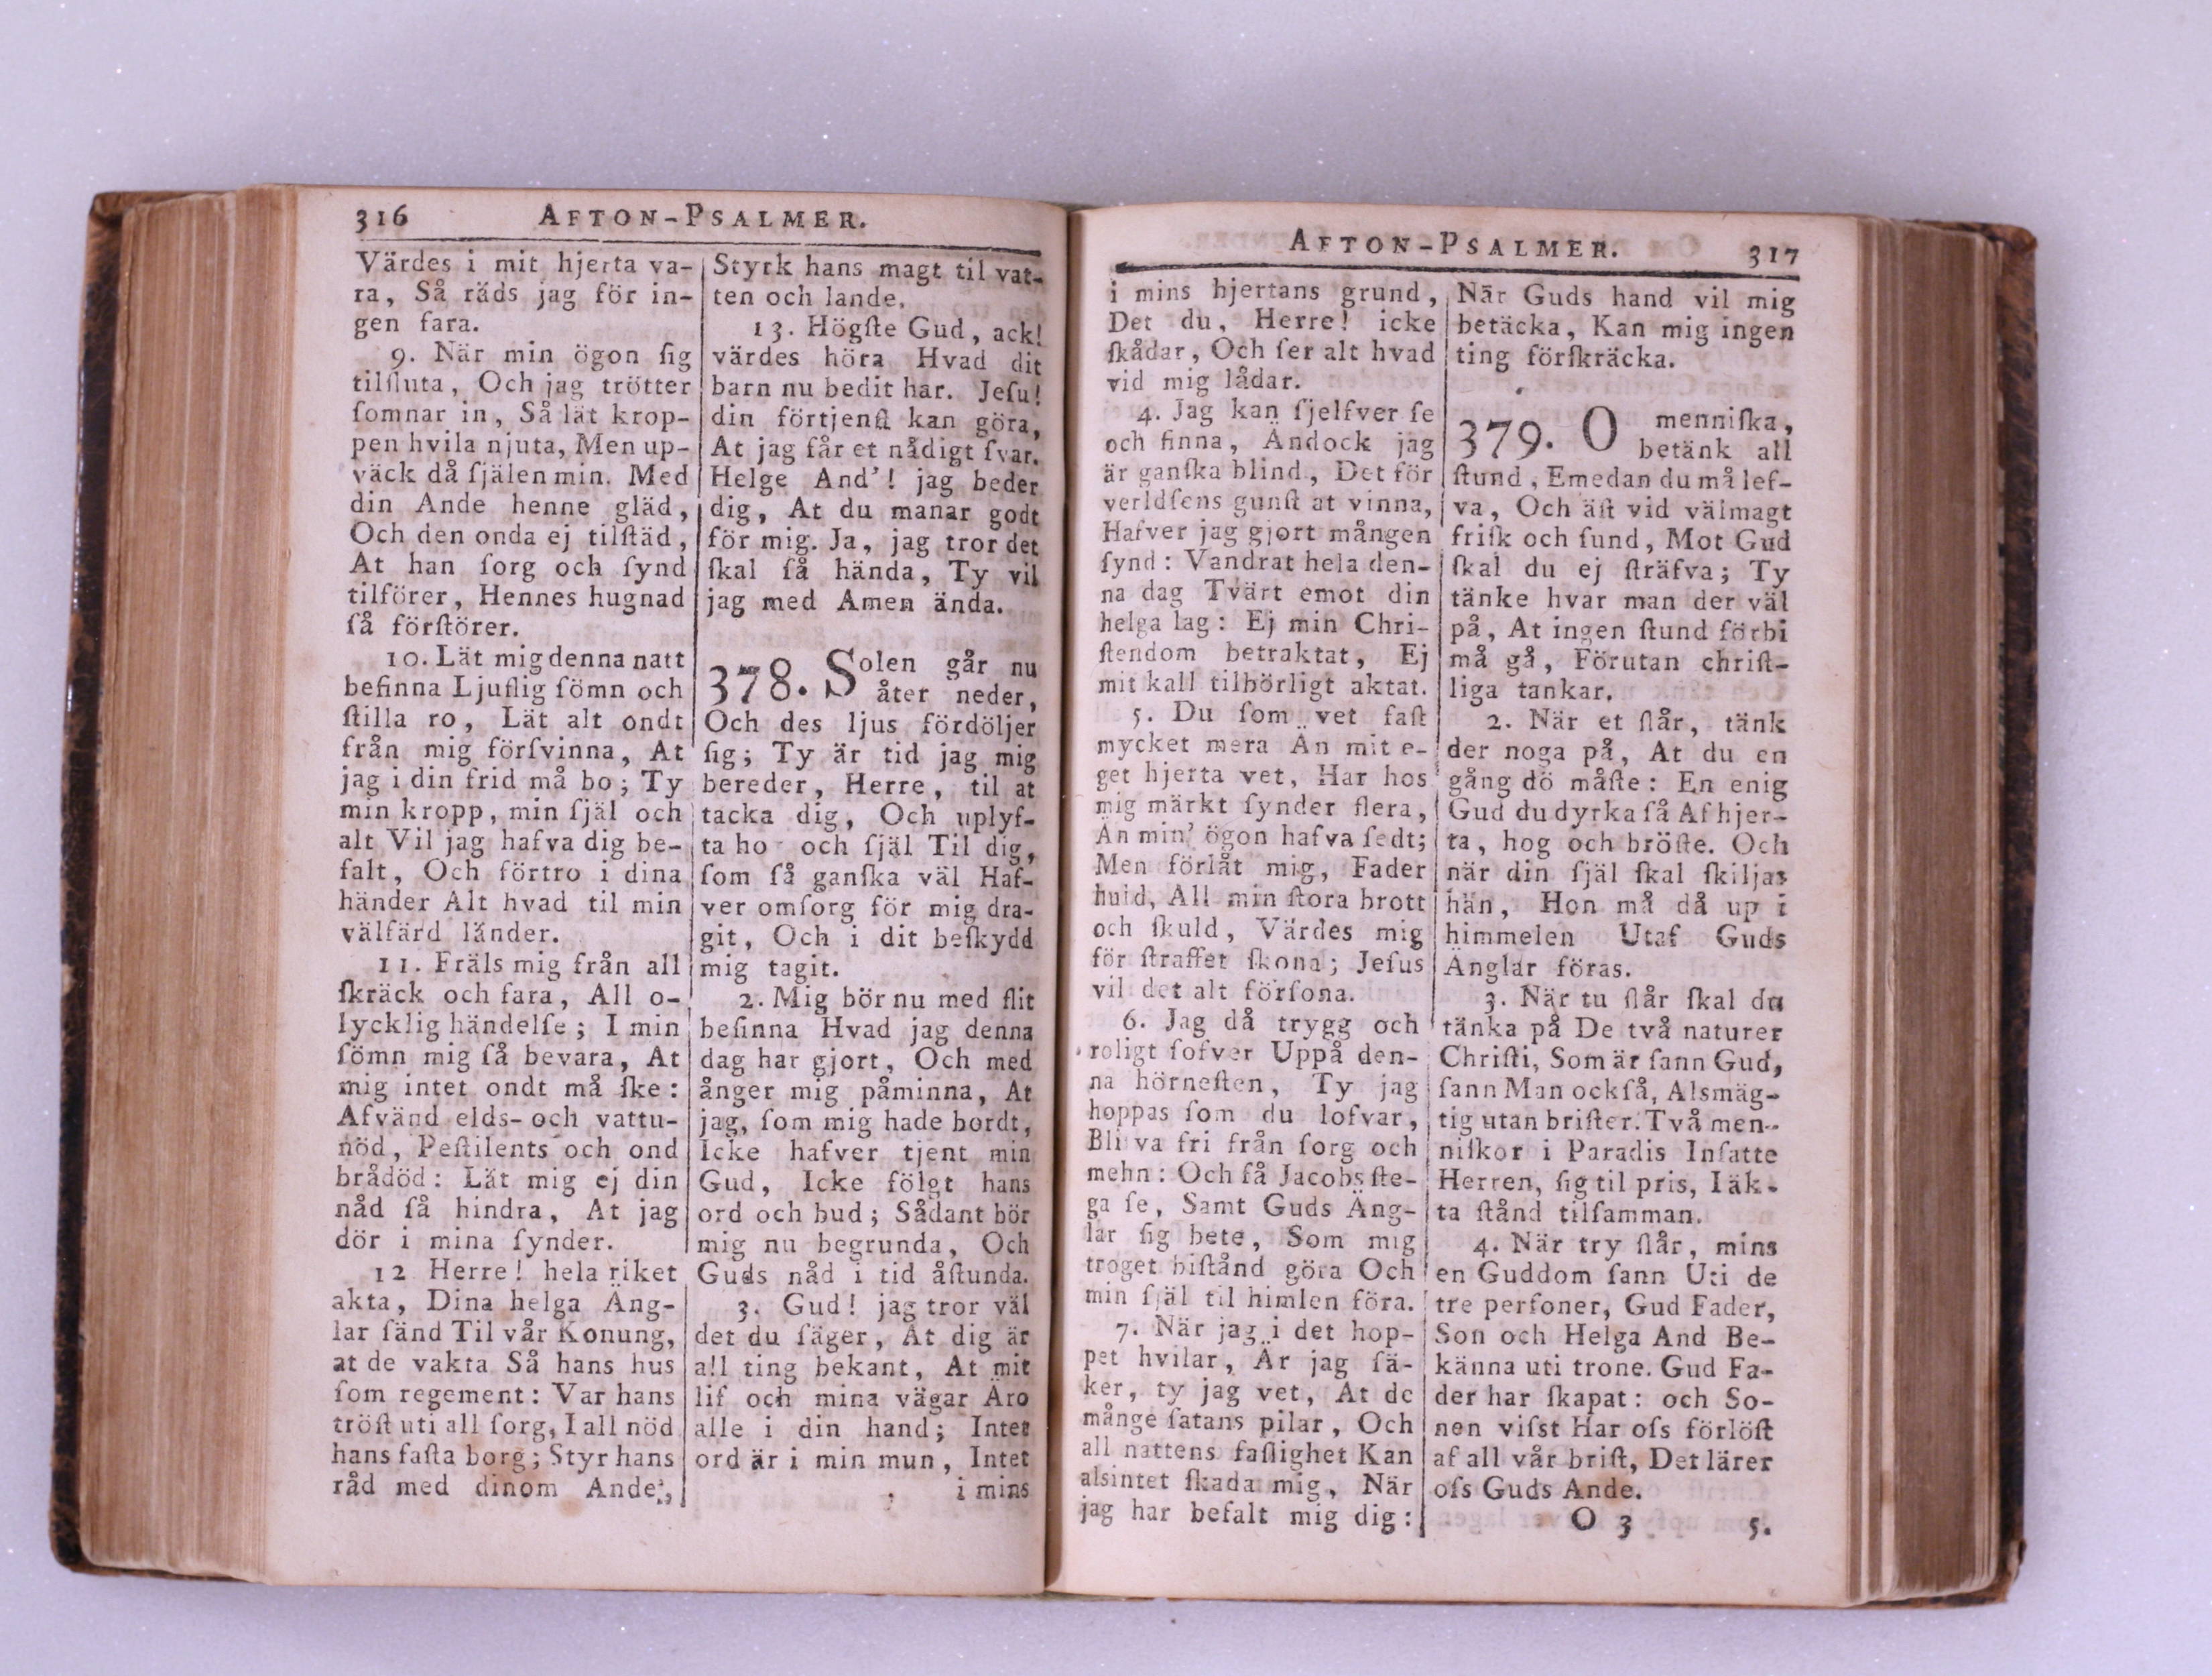 316 AFTON-PSALMER.
Värdes i mit hjerta va-
ra, Så räds jag för in-
gen fara.
9. När min ögon ſig
tilſluta, Och jag trötter
ſomnar in, Så lät krop-
pen hvila njuta, Men up-
väck då ſjälen min. Med
din Ande henne gläd,
Och den onda ej tilſtäd,
At han ſorg och ſynd
tilförer, Hennes hugnad
ſå förſtörer.
10. Lät mig denna natt
befinna Ljuflig ſömn och
ſtilla ro, Lät alt ondt
från mig förſvinna, At
jag i din frid må bo; Ty
min kropp, min ſjäl och
alt Vil jag hafva dig be-
falt, Och förtro i dina
händer Alt hvad til min
välfärd länder.
11. Fräls mig från all
ſkräck och fara, All o-
lycklig händelſe; I min
ſömn mig ſå bevara, At
mig intet ondt må ſke:
Afvänd elds- och vattu-
nöd, Peſtilents och ond
brådöd: Lät mig ej din
nåd ſå hindra, At jag
dör i mina ſynder.
12 Herre! hela riket
akta, Dina helga Äng-
lar ſänd Til vår Konung,
at de vakta Så hans hus
ſom regement: Var hans
tröſt uti all ſorg, I all nöd
hans faſta borg; Styr hans
råd med dinom Ande,
Styrk hans magt til vat-
ten och lande.
13. Högſte Gud, ack!
värdes höra Hvad dit
barn nu bedit har. Jeſu!
din förtjenſt kan göra,
At jag får et nådigt ſvar.
Helge And'! jag beder
dig, At du manar godt
för mig. Ja, jag tror det
ſkal ſå hända, Ty vil
jag med Amen ända.
378. Solen går nu
åter neder,
Och des ljus fördöljer
ſig; Ty är tid jag mig
bereder, Herre, til at
tacka dig, Och uplyf-
ta ho och ſjäl Til dig,
ſom ſå ganſka väl Haf-
ver omſorg för mig dra-
git, Och i dit beſkydd
mig tagit.
2. Mig bör nu med flit
beſinna Hvad jag denna
dag har gjort, Och med
ånger mig påminna, At
jag, ſom mig hade bordt,
Icke hafver tjent min
Gud, Icke fölgt hans
ord och bud; Sådant bör
mig nu begrunda, Och
Guds nåd i tid åſtunda.
3. Gud! jag tror väl
det du ſäger, At dig är
all ting bekant, At mit
lif och mina vägar Äro
alle i din hand; Intet
ord är i min mun, Intet
i mins
AFTON-PSALMER. 317
i mins hjertans grund,
Det du, Herre! icke
ſkådar, Och ſer alt hvad
vid mig lådar.
4. Jag kan ſjelfver ſe
och finna, Ändock jag
är ganſka blind, Det för
verldſens gunſt at vinna,
Hafver jag gjort mången
ſynd: Vandrat hela den-
na dag Tvärt emot din
helga lag: Ej min Chri-
ſtendom betraktat, Ej
mit kall tilbörligt aktat.
5. Du ſom vet faſt
mycket mera Än mit e-
get hjerta vet, Har hos
mig märkt ſynder flera,
Än min' ögon hafva ſedt;
Men förlåt mig, Fader
huld, All min ſtora brott
och ſkuld, Värdes mig
för ſtraffet ſkona; Jeſus
vil det alt förſona.
6. Jag då trygg och
roligt ſofver Uppå den-
na hörneſten, Ty jag
hoppas ſom du lofvar,
Bliva fri från ſorg och
mehn: Och få Jacobs ſte-
ga ſe, Samt Guds Äng-
lar ſig bete, Som mig
troget biſtånd göra Och
min ſjäl til himlen föra.
7. När jag i det hop-
pet hvilar, Är jag ſä-
ker, ty jag vet, At de
månge ſatans pilar, Och
all nattens faſlighet Kan
alsintet ſkada mig, När
jag har befalt mig dig:
När Guds hand vil mig
betäcka, Kan mig ingen
ting förſkräcka.
379. O menniſka,
betänk all
ſtund, Emedan du må lef-
va, Och äſt vid välmagt
friſk och ſund, Mot Gud
ſkal du ej ſträfva; Ty
tänke hvar man der väl
på, At ingen ſtund förbi
må gå, Förutan chriſt-
liga tankar.
2. När et ſlår, tänk
der noga på, At du en
gång dö måſte: En enig
Gud du dyrka ſå Af hjer-
ta, hog och bröſte. Och
när din ſjäl ſkal ſkiljas
hän, Hon må då up i
himmelen Utaf Guds
Änglar föras.
3. När tu ſlår ſkal du
tänka på De två naturer
Chriſti, Som är ſann Gud,
ſann Man ockſå, Alsmäg-
tig utan briſter. Två men-
niſkor i Paradis Inſatte
Herren, ſig til pris, I äk-
ta ſtånd tilſamman.
4. När try ſlår, mins
en Guddom ſann Uti de
tre perſoner, Gud Fader,
Son och Helga And Be-
känna uti trone. Gud Fa-
der har ſkapat: och So-
nen viſst Har oſs förlöſt
af all vår briſt, Det lärer
oſs Guds Ande.
O 3 5.